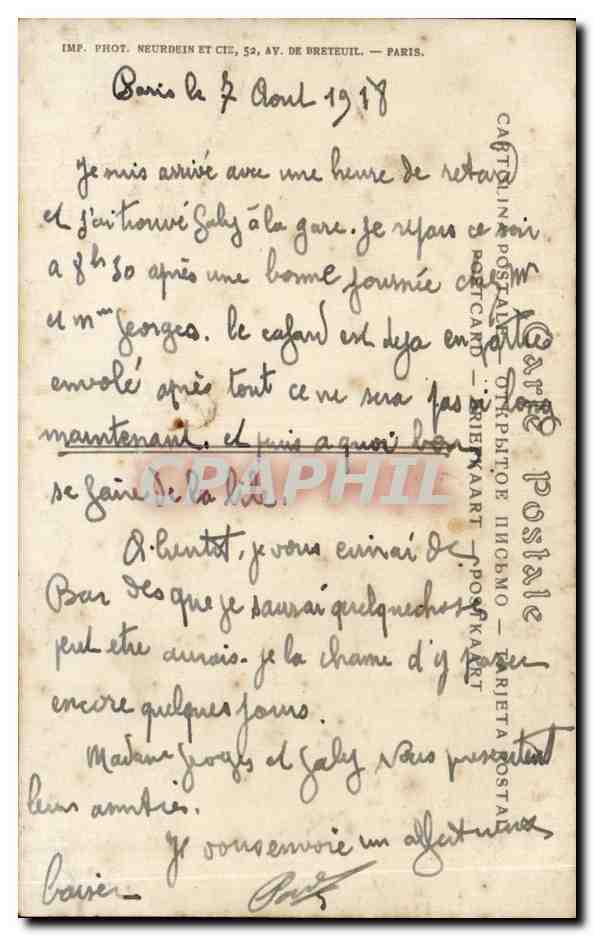 IMP. PHOT. NEURDEIN ET CIE, 52, AV. DE BRETEUIL. — PARIS.
Paris le 7 Aout 1918
Je suis arrivé avec une heure de retard
et j'ai trouvé Gaby à la gare. Je repars ce soir
a 8h 30 après une bonne journée chez Mr
et Mme Georges. le cafard est deja en partie
envolé après tout ce ne sera pas si long
maintenant. et puis a quoi bon
se faire de la bile.
A bientot, je vous ecrirai de
Bar des que je saurai quelquechose
peut etre aurais-je la chance d'y passer
encore quelques jours.
Madame Georges et Gaby vous presentent
leurs amitiés.
Je vous envoie un affectueux
baiser
Carte Postale
CARTOLINA POSTALE — ОТКРЫТОЕ ПИСЬМО — TARJETA POSTAL
POSTCARD — BRIEFKAART — POSTKAART
CPAPHIL